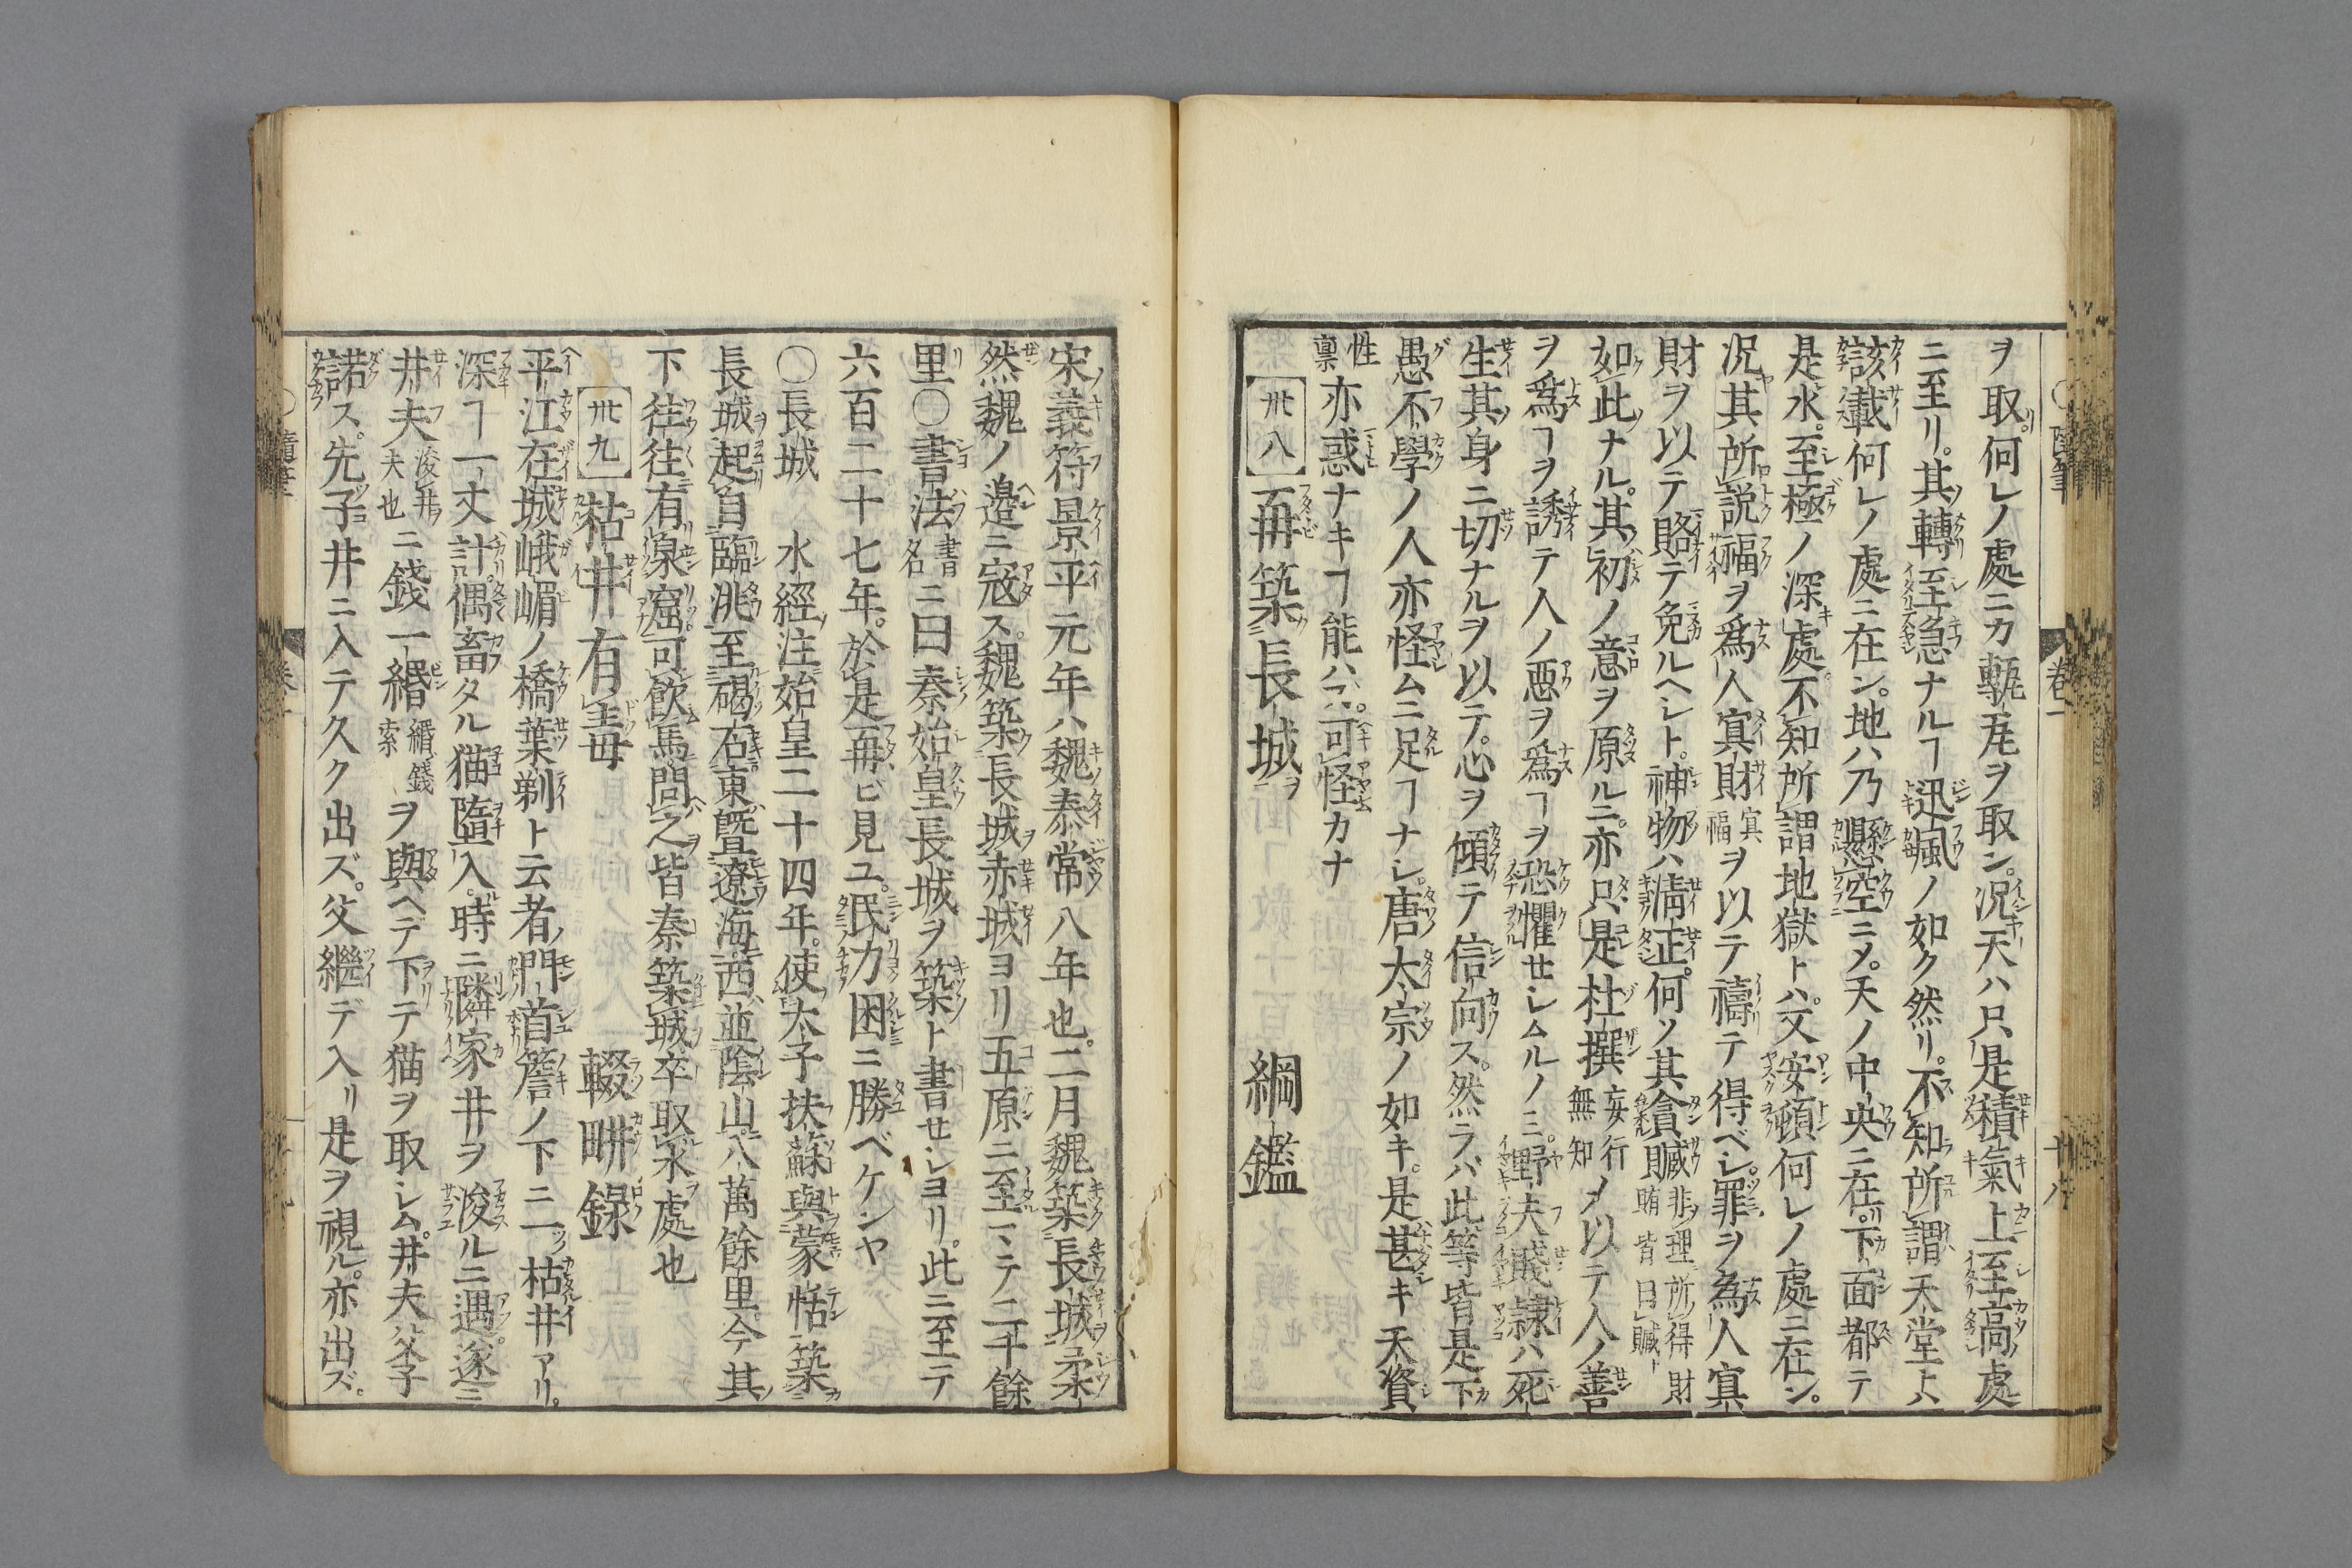 ヲ取何レノ處ニカ甎瓦ヲ取ン。况天ハ只是積氣上至高處
ニ至リ。其轉至急ナルヿ迅颯ノ如ク然リ。不知所謂天堂トハ
該載何レノ處ニ在ン。地ハ乃懸空ニメ。天ノ中央ニ在。下面都テ
是水。至極ノ深處。不知所謂地獄トハ。又安頓何レノ處ニ在ン。
况其所説福ヲ爲人寘財寘福ヲ以テ禱テ得ベシ。罪ヲ為人寘
財ヲ以テ賂テ免ルヘシト。神物ハ淸正。何ソ其貪贓非理所得財賄皆曰贓ト
如此ナル。其初ノ意ヲ原ルニ。亦只是杜撰妄行無知メ以テ人ノ善
ヲ爲ヿヲ誘テ人ノ惡ヲ爲ヿヲ恐懼セシムルノミ。野夫賤隷ハ死
生其身ニ切ナルヲ以テ。心ヲ傾テ信向ス。然ラバ此等皆是下
愚不學ノ人亦怪ムニ足ルヿナシ。唐太宗ノ如キ。是甚キ天資
性稟亦惑ナキヿ能ハズ。可怪カナ
卅八 再築長城 綱鑑
宋義符景平元年ハ魏泰常八年也。二月魏築長城柔
然魏ノ邊ニ寇ス。魏築長城赤城ヨリ五原ニ至マテ二千餘
里〇書法書名ニ曰秦始皇長城ヲ築ト書セシヨリ。此ニ至テ
六百二十七年。於是再ビ見ユ。民力困ニ勝ベケンヤ
〇長城 水經注始皇二十四年。使太子扶蘇與蒙恬築
長城起自臨洮至碣石東曁遼海西並陰山八萬餘里。今其
下往往有泉窟可飮馬問之皆秦築城卒取水處也
卅九 枯井有毒 輟畊録
平江在城峨嵋ノ橋葉剃ト云者ノ門首簷ノ下ニ一枯井アリ。
深ヿ一丈計偶畜タル猫墮入。時ニ隣家井ヲ浚ルニ遇。遂ニ
井夫浚井夫也ニ錢一緡緡錢索ヲ與ヘデ下テ猫ヲ取シム。井夫父子
諾ス。先子井ニ入テ久ク出ズ。父繼デ入リ是ヲ視ル。亦出ズ。